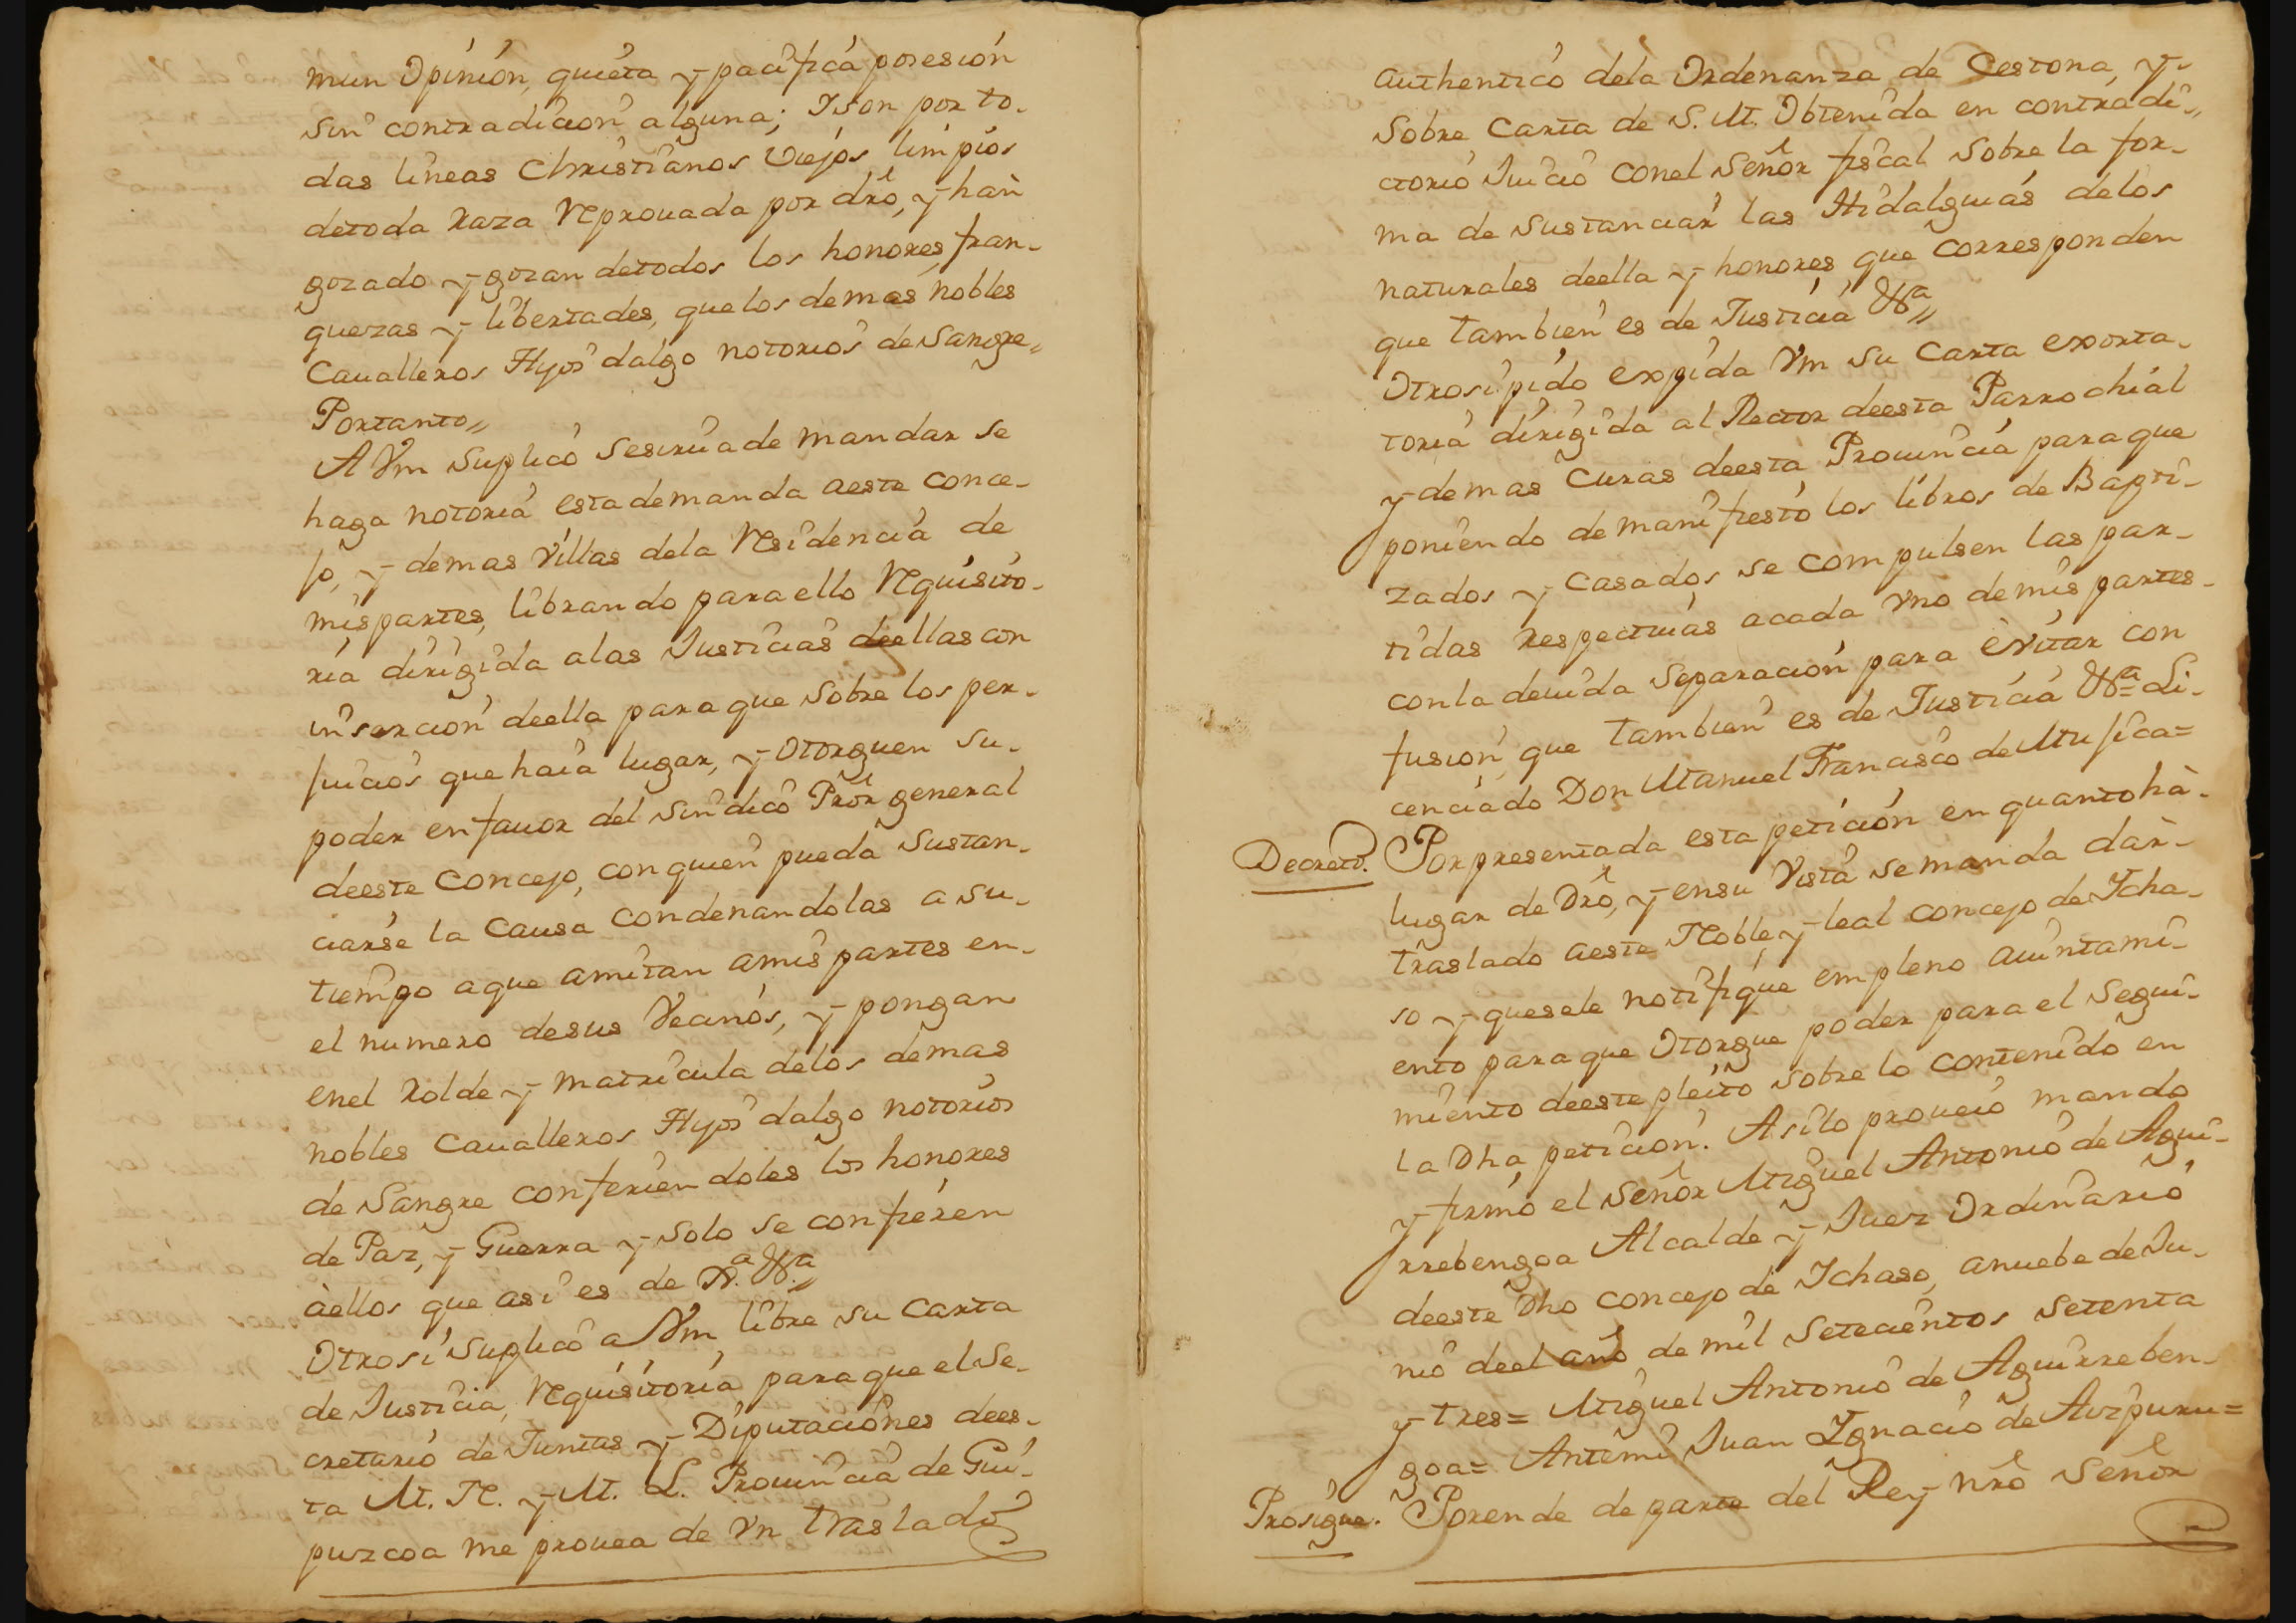 mun Opinion, quieta y pacifica posesion
sin contradicion alguna; Y son por to-
das lineas Christianos Viejos limpios
de toda Raza Reprouada por dro, y han
gozado y gozan de todos los honores, fran-
quezas y libertades, que los demas nobles
Caualleros Hijos dalgo notorios de Sangre,,
Portanto,,
A Vm Suplico se sirua de mandar se
haga notoria esta demanda a este Conce-
jo, y demas Villas dela Residencia de
mis partes, librando para ello Requisito-
ria dirigida a las Justicias de ellas con
insercion de ella para que sobre los per-
juicios que haia lugar, y otorguen su
poder en fauor del Sindico Pror general
de este Concejo, con quien pueda Sustan-
ciarse la Causa condenandolas a su
tiempo a que amitan a mis partes en
el numero de sus Vecinos, y pongan
en el Rolde y matricula delos demas
nobles Caualleros Hijos dalgo notorios
de Sangre confiriendoles los honores
de Paz, y Guerra y solo se confieren
à ellos que asi es de Xa. &a,,
Otrosi Suplico a Vm, libre su Carta
de Justicia, Requisitoria para que el Se-
cretario de Juntas y Diputaciones de es-
ta M. N. y M. L. Prouincia de Gui-
puzcoa me prouea de Vn traslado
authentico dela Ordenanza de Cestona, y
Sobre Carta de S. M. Obtenida en contradi-,,
ctorio Juicio con el Señor fiscal Sobre la for-
ma de Sustanciar las Hidalguias delos
naturales de ella y honores que corresponden
que tambien es de Justicia &a,,
Otrosi pido expida Vm su Carta exorta-
toria dirigida al Rector de esta Parrochial
y demas Curas de esta Prouincia para que
poniendo de manifiesto los libros de Bapti-
zados y Casados se compulsen las par-
tidas respectiuas a cada vno de mis partes
con la deuida Separacion para evitar con
fusion, que tambien es de Justicia &a = Li-
cenciado Don Manuel Francisco de Mujica=
Decreto. Por presentada esta peticion en quanto hà
lugar de Dro, y en su Vista se manda dàr
traslado a este Noble y leal concejo de Ycha-
so y que se le notifique em pleno aiuntami-
ento para que Otorgue poder para el Segui-
miento de este pleito sobre lo contenido en
la Dha peticion. Asi lo proueio mando
y firmó el Señor Miguel Antonio de Agui-
rrebengoa Alcalde y Juez Ordinario
de este Dho Concejo de Ychaso, a nuebe de Ju-
nio de el año de mil Setecientos Setenta
y tres= Miguel Antonio de Aguirreben-
goa= Antemi Juan Ygnacio de Aizpuru=
Prosigue. Porende de parte del Rey nro Señor